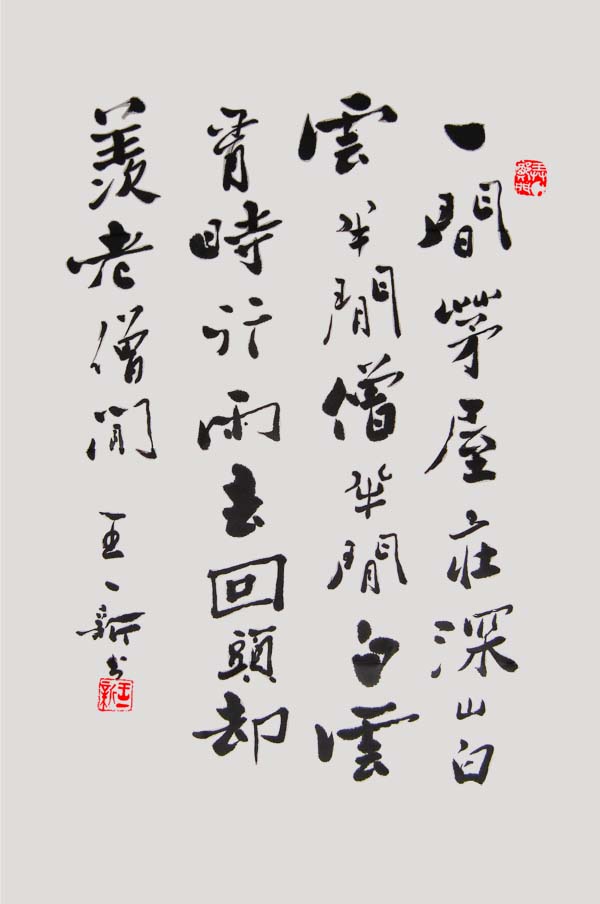 一間茅屋在深山白
雲半間僧半間白雲
有時行雨去回頭却
羨老僧閒 王一新书